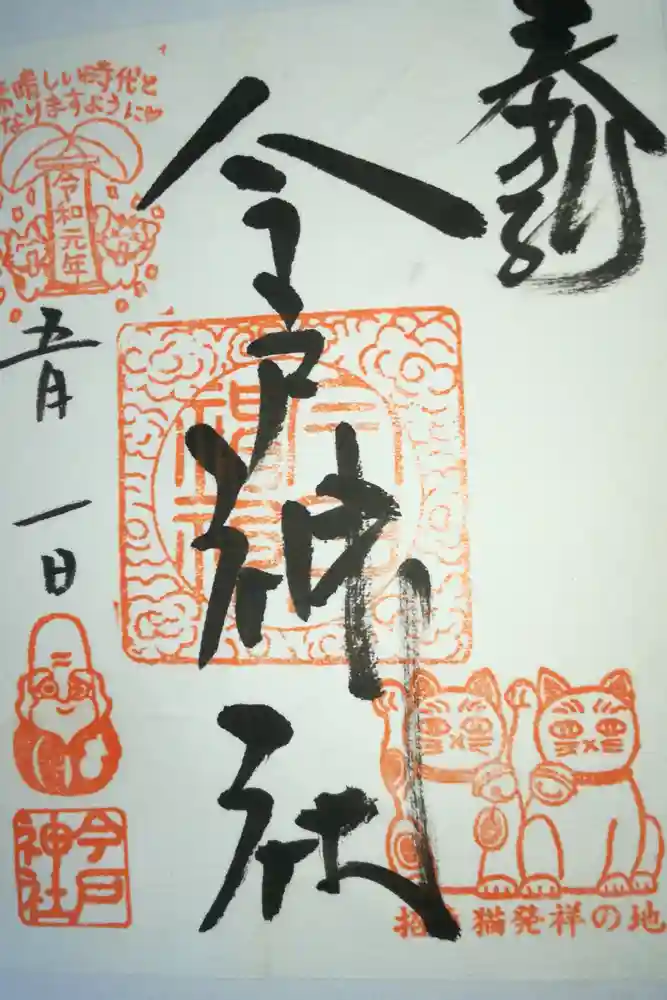 奉拝
今戸神社
素晴しい時代と
なりますように♡
令和元年
五月一日
今戸
神社
招き猫発祥の地